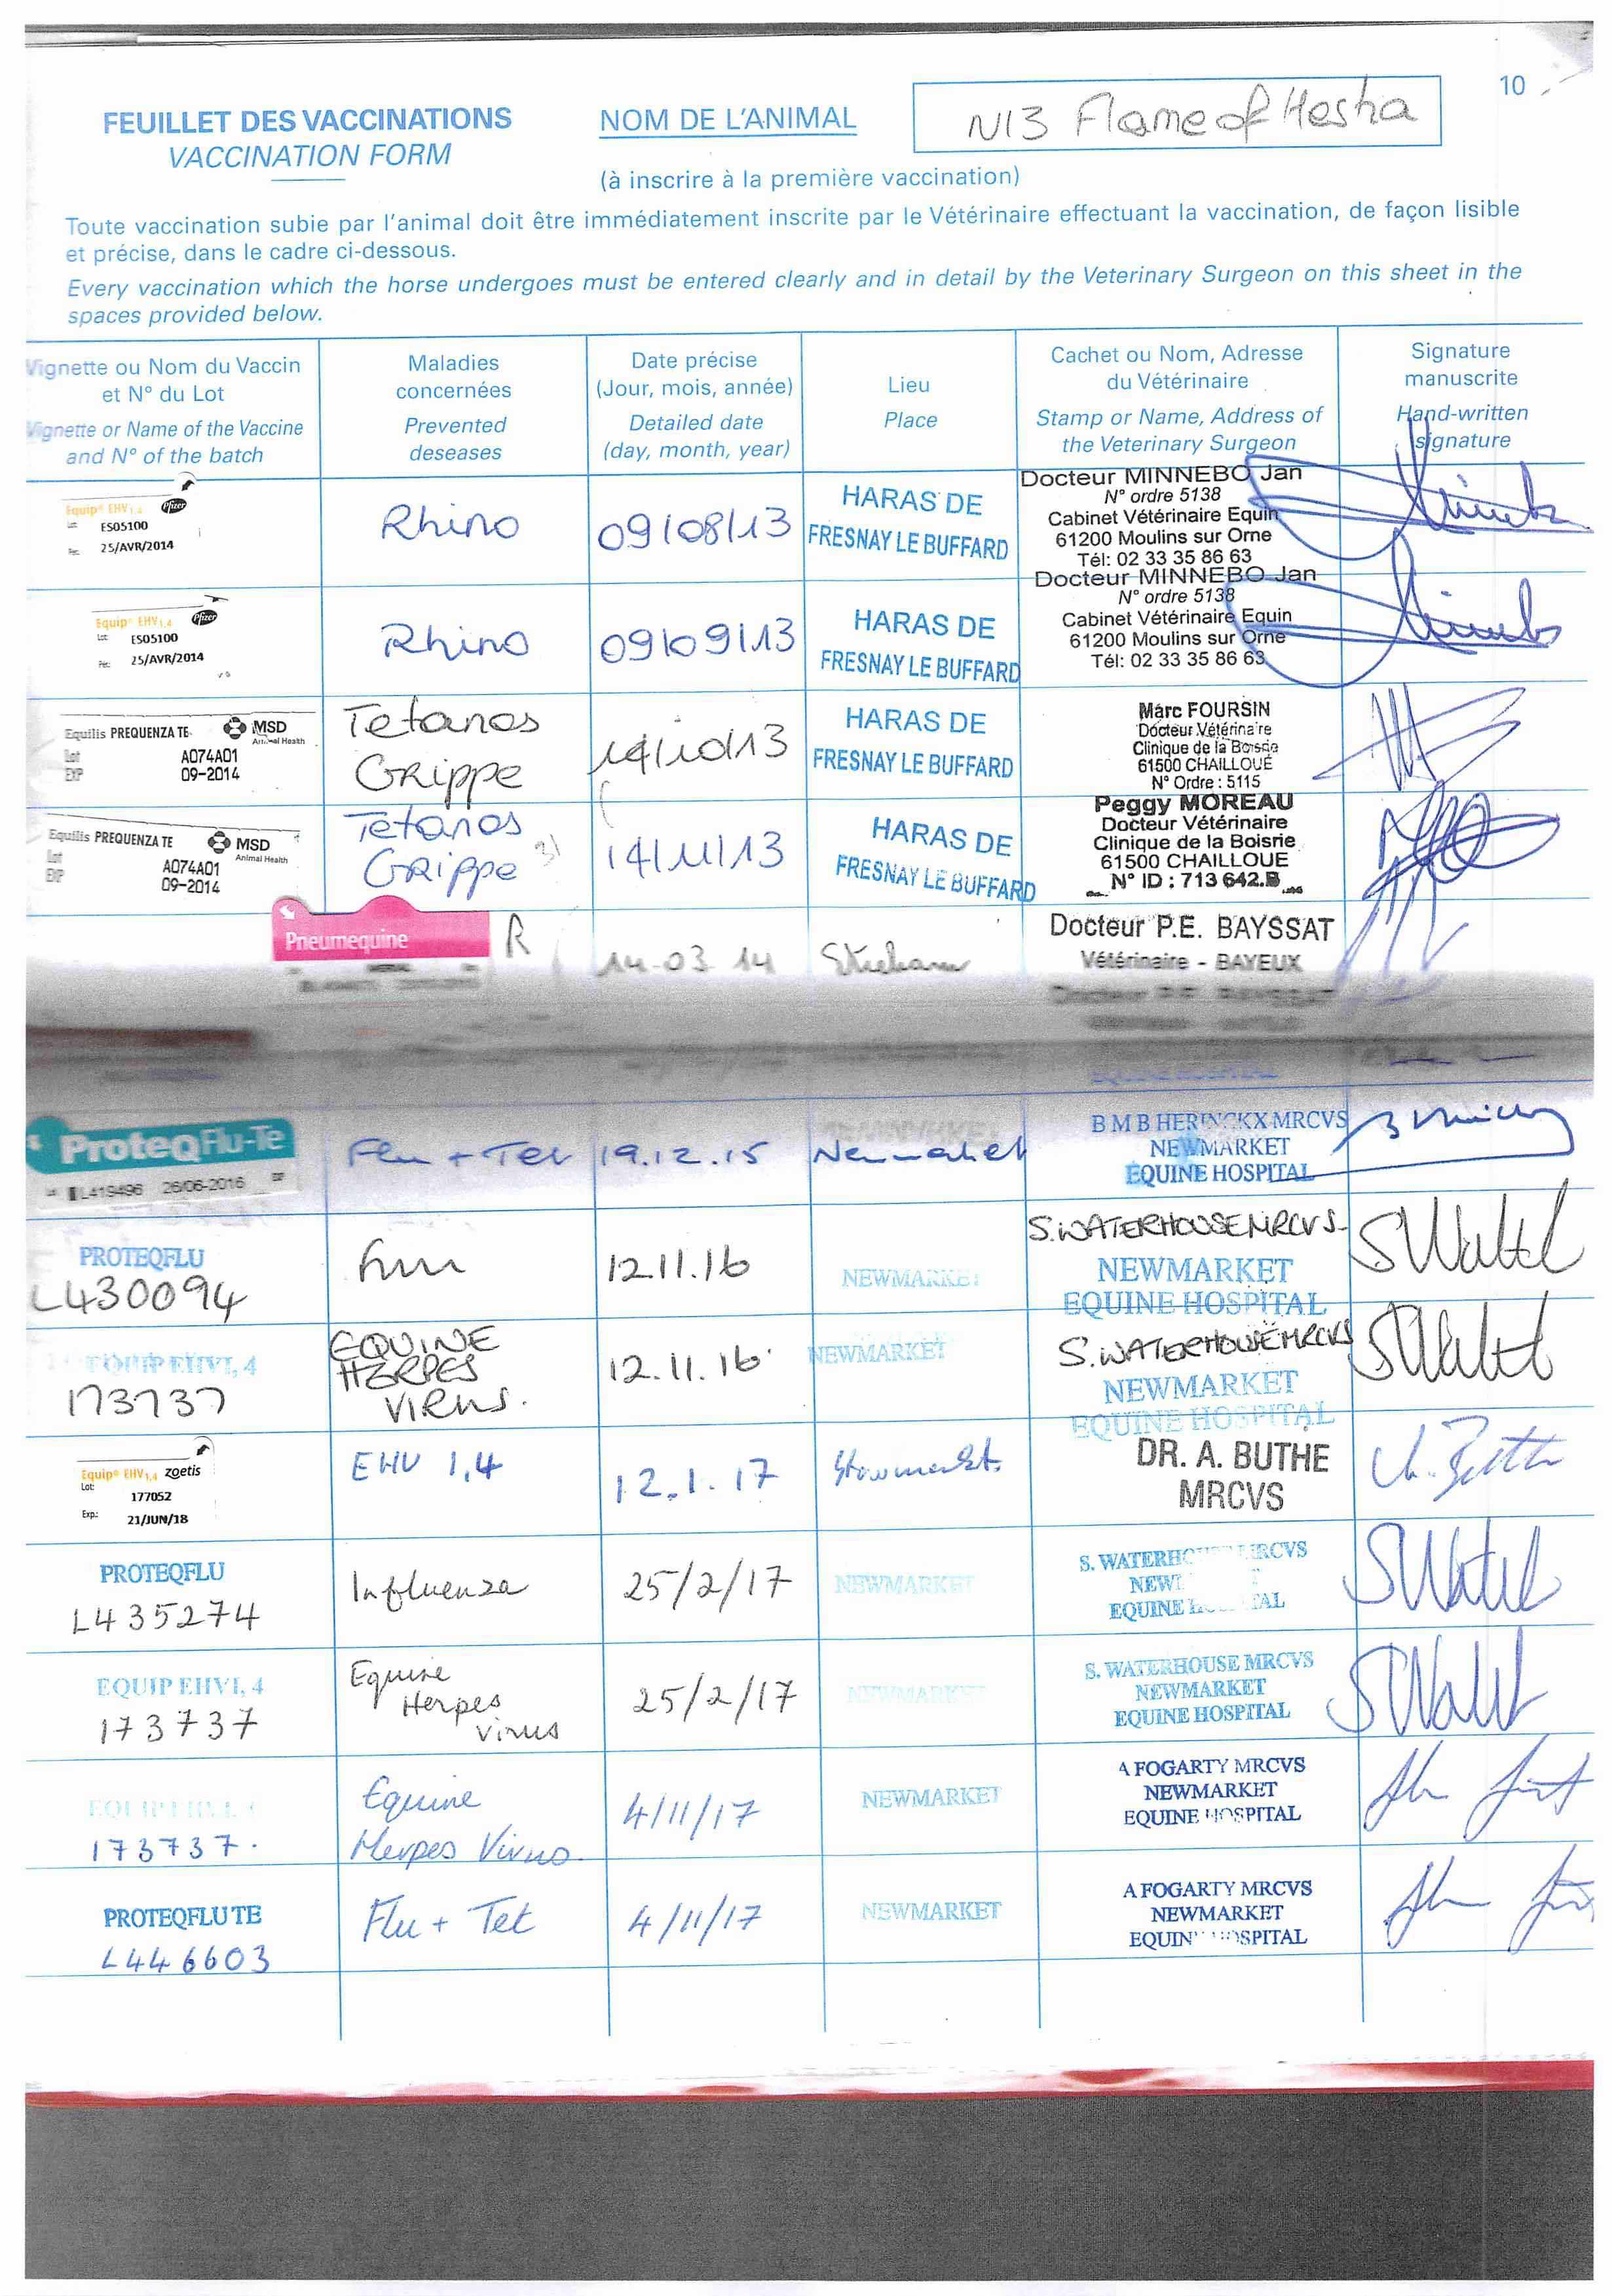 10
FEUILLET DES VACCINATIONS
VACCINATION FORM
NOM DE L'ANIMAL
N13 Flame of Hesha
(à inscrire à la première vaccination)
Toute vaccination subie par l'animal doit être immédiatement inscrite par le Vétérinaire effectuant la vaccination, de façon lisible
et précise, dans le cadre ci-dessous.
Every vaccination which the horse undergoes must be entered clearly and in detail by the Veterinary Surgeon on this sheet in the
spaces provided below.
Vignette ou Nom du Vaccin
et N° du Lot
Vignette or Name of the Vaccine
and N° of the batch
Maladies
concernées
Prevented
deseases
Date précise
(Jour, mois, année)
Detailed date
(day, month, year)
Lieu
Place
Cachet ou Nom, Adresse
du Vétérinaire
Stamp or Name, Address of
the Veterinary Surgeon
Signature
manuscrite
Hand-written
signature
Equip® EHV 1,4 Pfizer
Lot: ES05100
Per: 25/AVR/2014
Rhino
09/08/13
HARAS DE
FRESNAY LE BUFFARD
Docteur MINNEBO Jan
N° ordre 5138
Cabinet Vétérinaire Equin
61200 Moulins sur Orne
Tél: 02 33 35 86 63
Equip® EHV 1,4 Pfizer
Lot: ES05100
Per: 25/AVR/2014
Rhino
09/09/13
HARAS DE
FRESNAY LE BUFFARD
Docteur MINNEBO Jan
N° ordre 5138
Cabinet Vétérinaire Equin
61200 Moulins sur Orne
Tél: 02 33 35 86 63
Equilis PREQUENZA TE MSD
Animal Health
Lot A074A01
EXP 09-2014
Tetanos
Grippe
14/10/13
HARAS DE
FRESNAY LE BUFFARD
Marc FOURSIN
Docteur Vétérinaire
Clinique de la Boisrie
61500 CHAILLOUÉ
N° Ordre : 5115
Equilis PREQUENZA TE MSD
Animal Health
Lot A074A01
EXP 09-2014
Tetanos
Grippe
14/11/13
HARAS DE
FRESNAY LE BUFFARD
Peggy MOREAU
Docteur Vétérinaire
Clinique de la Boisrie
61500 CHAILLOUE
N° ID : 713 642.B
Pneumequine
R
14-03 14
Docteur P.E. BAYSSAT
Vétérinaire - BAYEUX
ProteqFlu-Te
L419496 26/06-2016
Flu + Tet
19.12.15
Newmarket
B M B HERINCKX MRCVS
NEWMARKET
EQUINE HOSPITAL
PROTEQFLU
L430094
12.11.16
NEWMARKET
S. WATERHOUSE MRCVS
NEWMARKET
EQUINE HOSPITAL
EQUIP EHV1, 4
173737
EQUINE
HERPES
VIRUS.
12.11.16
NEWMARKET
S. WATERHOUSE MRCVS
NEWMARKET
EQUINE HOSPITAL
Equip® EHV 1,4 zoetis
Lot:
177052
Exp.: 21/JUN/18
EHV 1,4
12.1.17
Stowmarket
DR. A. BUTHE
MRCVS
PROTEQFLU
L435274
Influenza
25/2/17
NEWMARKET
S. WATERHOUSE MRCVS
EQUINE
EQUIP EHV1, 4
173737
Equine
Herpes
Virus
25/2/17
NEWMARKET
S. WATERHOUSE MRCVS
NEWMARKET
EQUINE HOSPITAL
173737.
Equine
Herpes Virus
4/11/17
NEWMARKET
A FOGARTY MRCVS
NEWMARKET
EQUINE HOSPITAL
PROTEQFLU TE
L446603
Flu + Tet
4/11/17
NEWMARKET
A FOGARTY MRCVS
NEWMARKET
EQUINE HOSPITAL